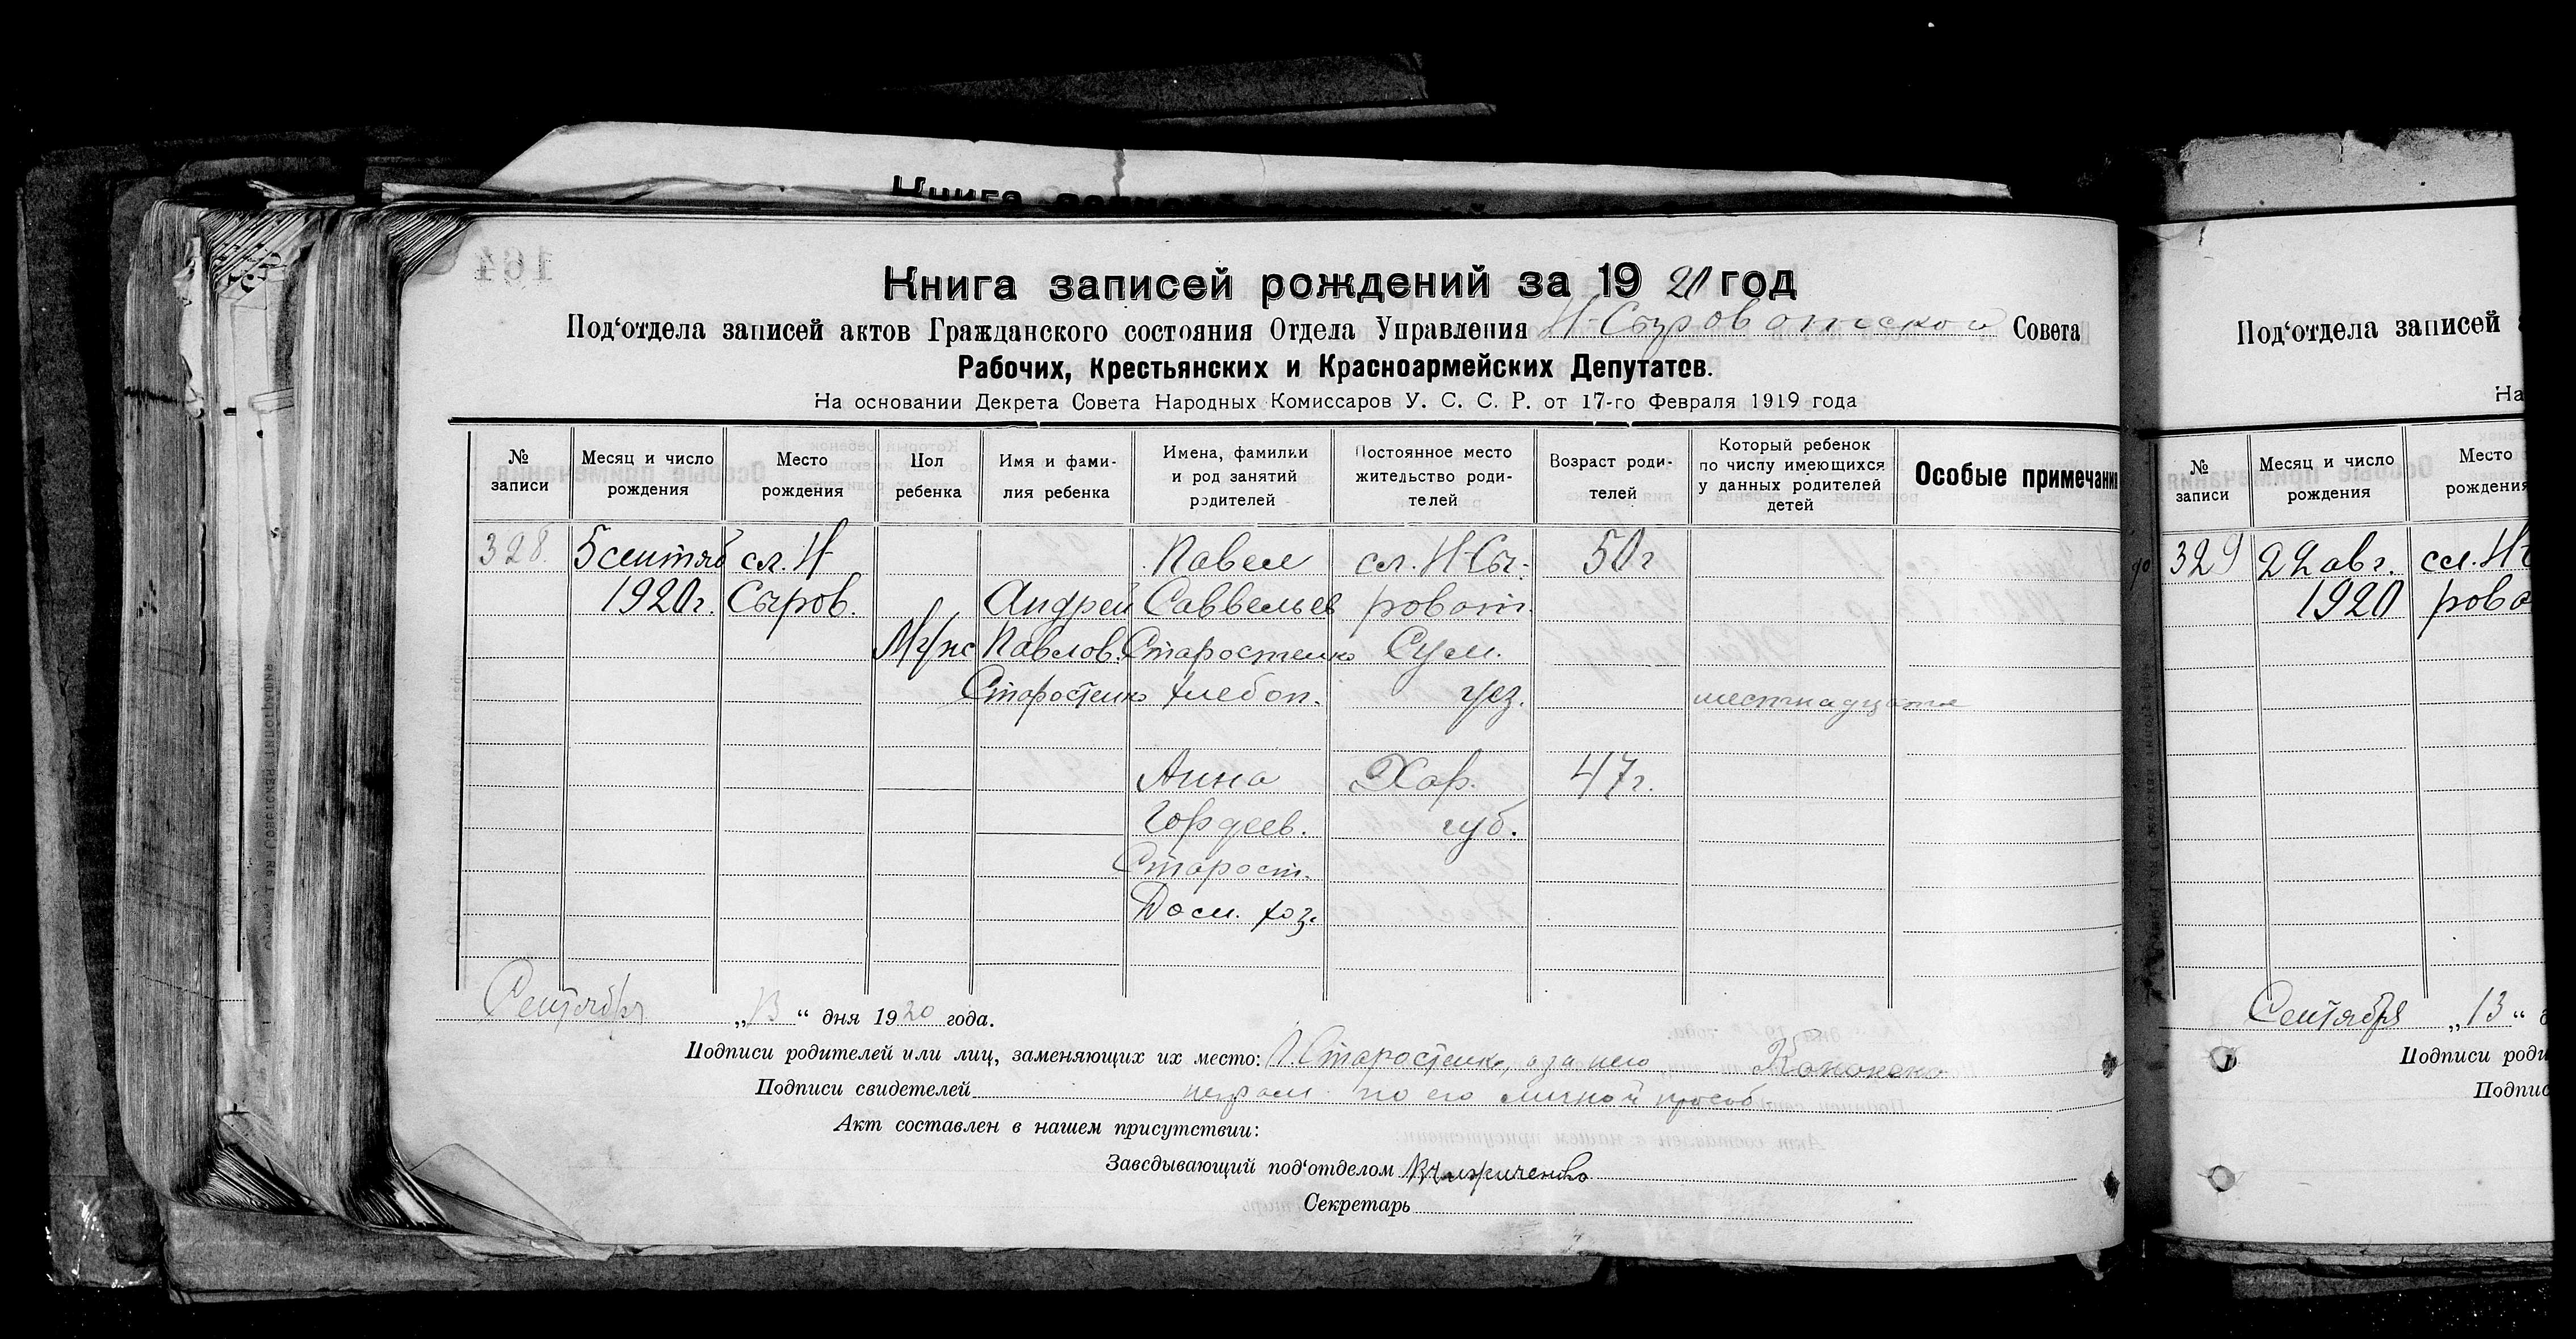 Книга записей рождений за 19 20 год
Под‘отдела записей актов Гражданского состояния Отдела Управления Н-Сыроватской Совета
Рабочих, Крестьянских и Красноармейских Депутатов.
На основании Декрета Совета Народных Комиссаров У. С. С. Р. от 17-го Февраля 1919 года
№ записи
Месяц и число рождения
Место рождения
Пол ребенка
Имя и фами-
лия ребенка
Имена, фамилии
и род занятий
родителей
Постоянное место
жительство роди-
телей
Возраст роди-
телей
Который ребенок
по числу имеющихся
у данных родителей
детей
Особые примечания
328. 5 сентяб сл. Н- Павел сл. Н-Сы- 50 г
1920 г. Сыров. Андрей Саввельев роват.
Муж Павлов. Старостенко Сум.
Старостенко хлебоп. уез. шестнадцатое
Анна Хар. 47 г.
Гордеев. губ.
Старост.
Дом. хоз.
Сентября „13“ дня 1920 года.
Подписи родителей или лиц, заменяющих их место: П. Старостенко, а за него Кононенко
Подписи свидетелей неграм. по его личной прозб
Акт составлен в нашем присутствии:
Заведывающий под‘отделом
Секретарь
164
Под‘отдела записей
На
№ записи
Месяц и число рождения
Место рождения
329 22 авг. сл. Н-
1920 рова
Сентября „13“
Подписи роди
Подпис